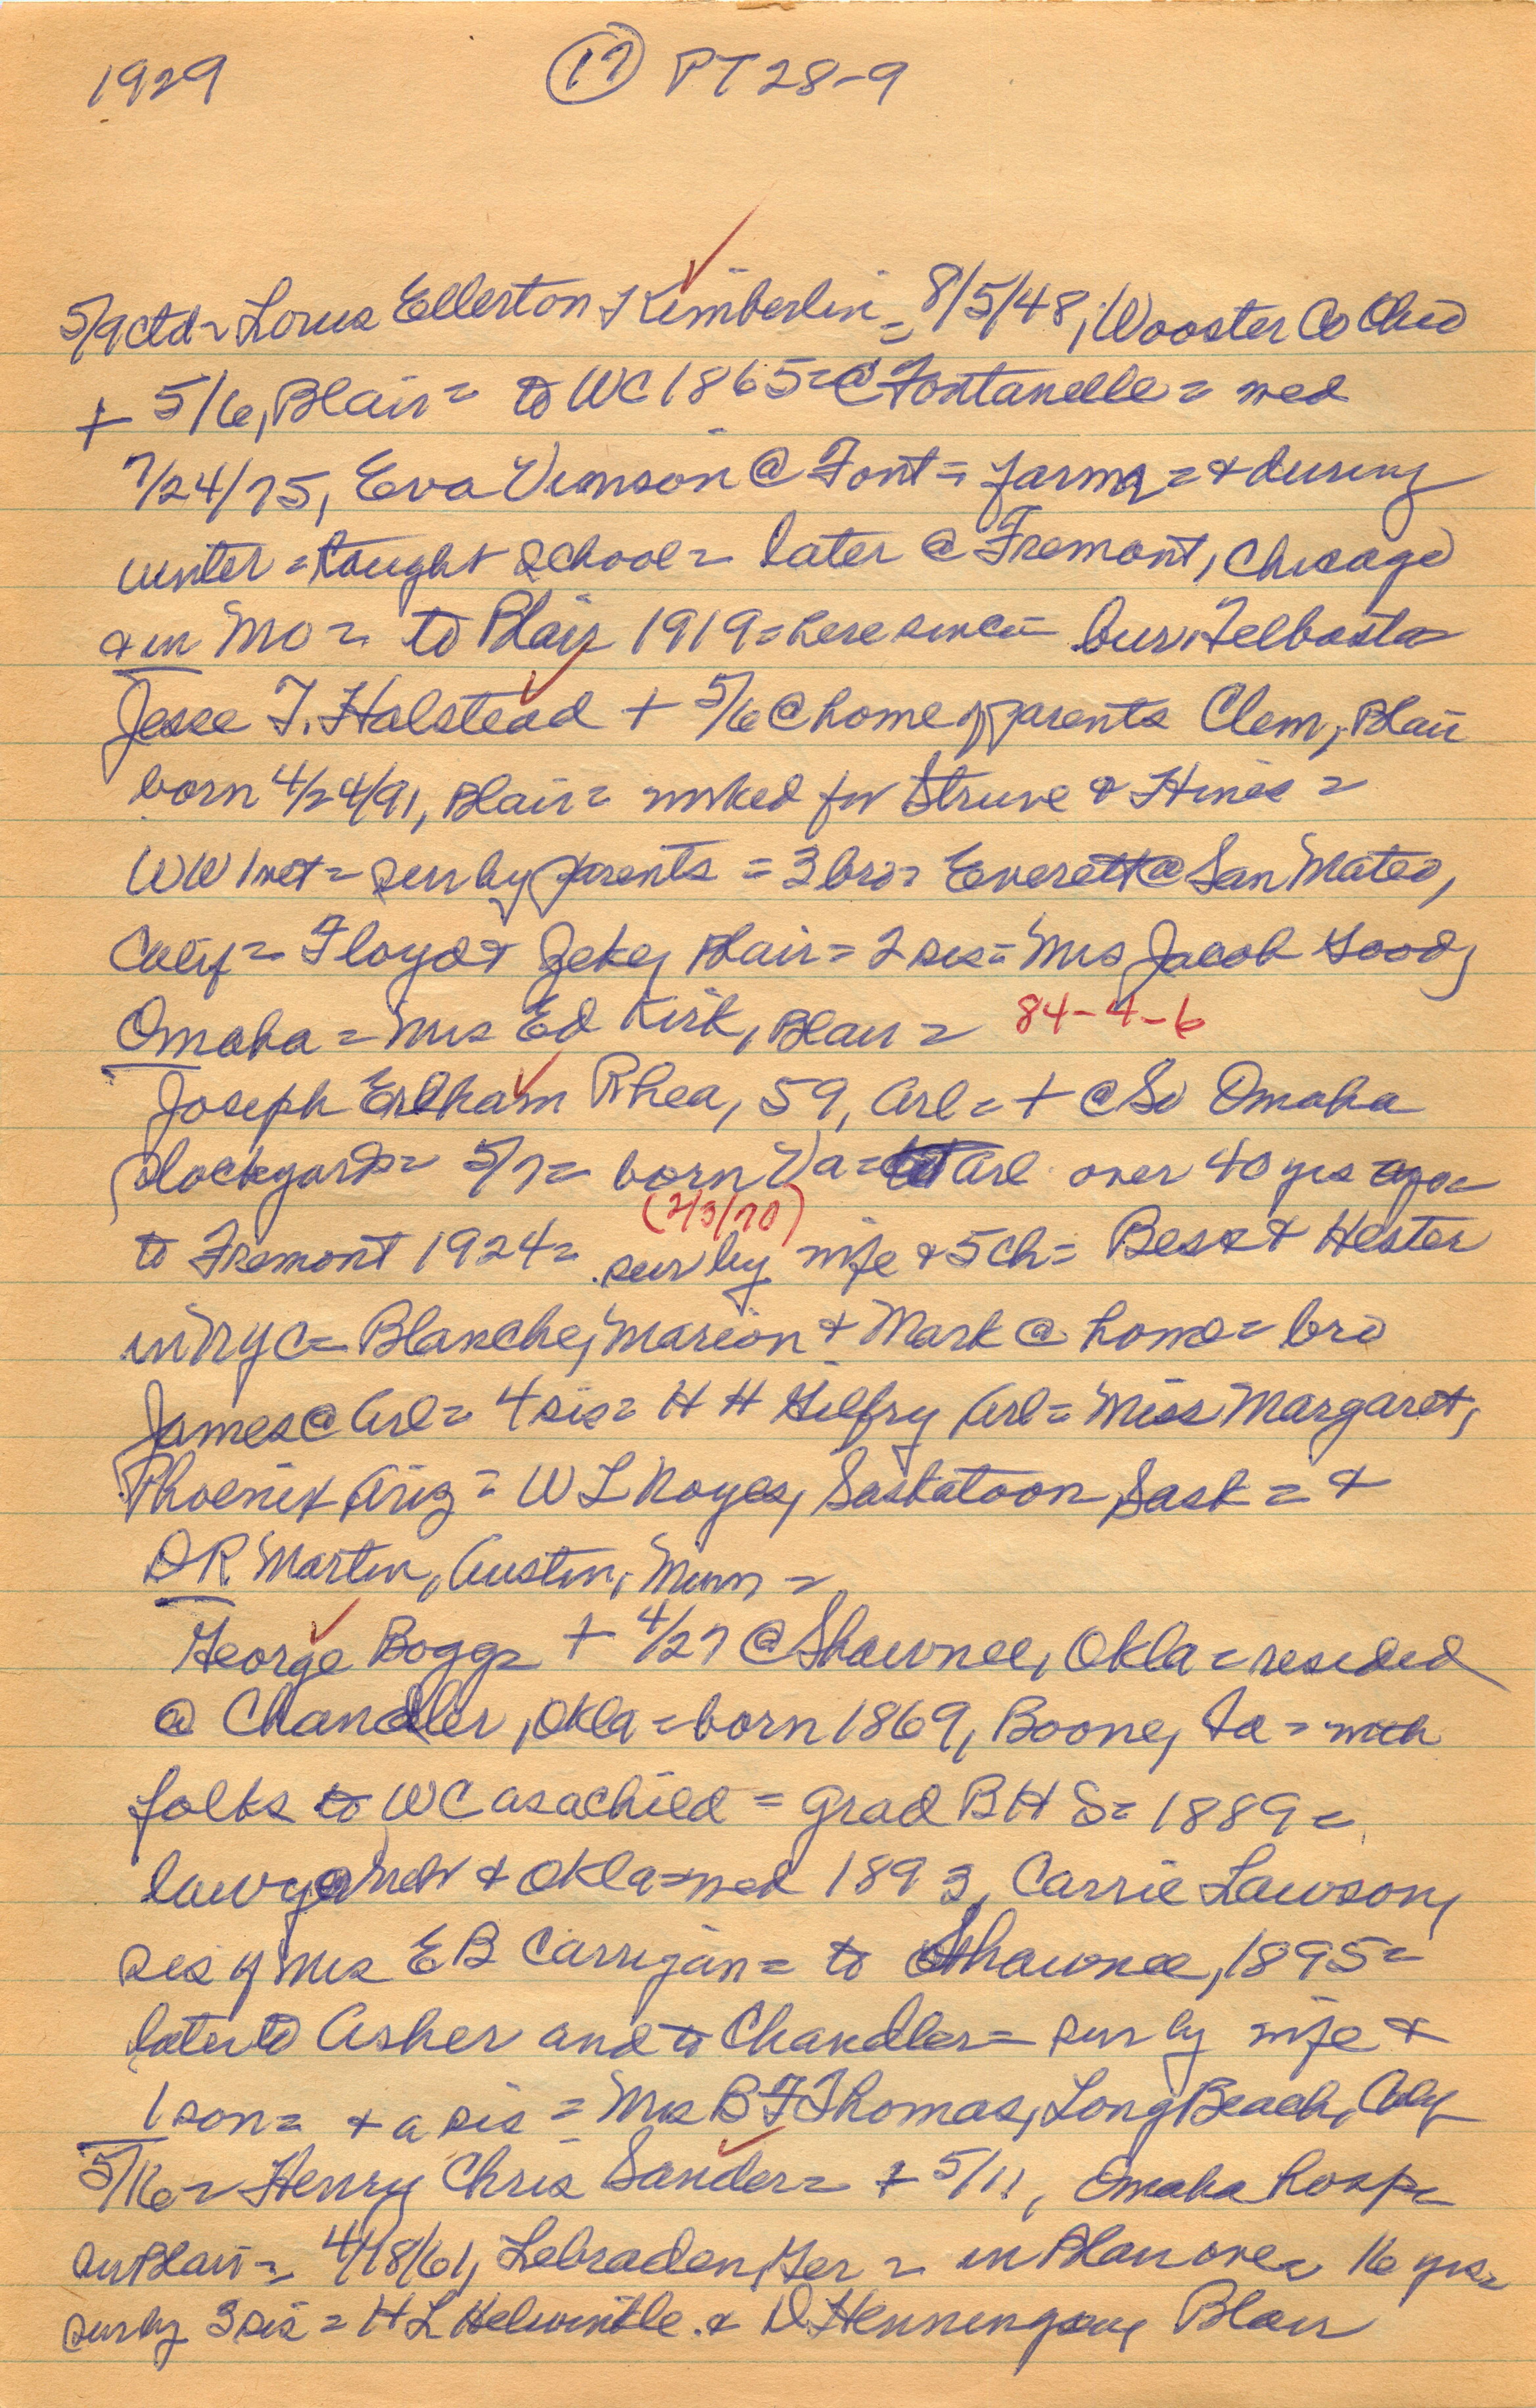 1929 (17) PT 28-9
5/9 ctd = Lorus Ellerton Kimberlin = 8/5/48, Wooster Co Ohio
+ 5/6, Blair = to WC 1865 = @ Fontanelle = wed
7/24/75, Eva Vinson @ Font = farmer = & during
winter = taught school = later @ Fremont, Chicago
& in Mo = to Blair 1919 = here since = bur Telbasta
Jesse T. Halstead + 5/6 @ home of parents Clem, Blair
born 4/24/91, Blair = worked for Struve & Hines =
WW1 vet = sur by parents = 3 bro = Everett @ San Mateo,
Calif = Floyd & Zeke, Blair = 2 sis = Mrs Jacob Good,
Omaha = Mrs Ed Kirk, Blair = 84-4-6
Joseph Erlham Rhea, 59, Arl = + @ So Omaha
stockyards = 5/7 = born Va = to Arl over 40 yrs ago =
(2/3/70)
to Fremont 1924 = sur by wife & 5 ch = Bess & Hester
in NYC = Blanche, Marion & Mark @ home = bro
James @ Arl = 4 sis = H H Gilfry Arl = Miss Margaret,
Phoenix, Ariz = W L Noyes, Saskatoon, Sask = &
D R Martin, Austin, Minn =
George Boggs + 4/27 @ Shawnee, Okla = resided
@ Chandler, Okla = born 1869, Boone, Ia = with
folks to WC as a child = grad BHS = 1889 =
lawyer @ Neb & Okla = wed 1893, Carrie Lawson,
sis of Mrs E B Carrigan = to Shawnee, 1895 =
later to Asher and to Chandler = sur by wife &
1 son = & a sis = Mrs B F Thomas, Long Beach, Calif
5/16 = Henry Chris Sander = + 5/11, Omaha hosp =
4/18/61, Ger = in Blair over 16 yrs =
sur by 3 sis = H L Helwinkle & D Henningsen, Blair